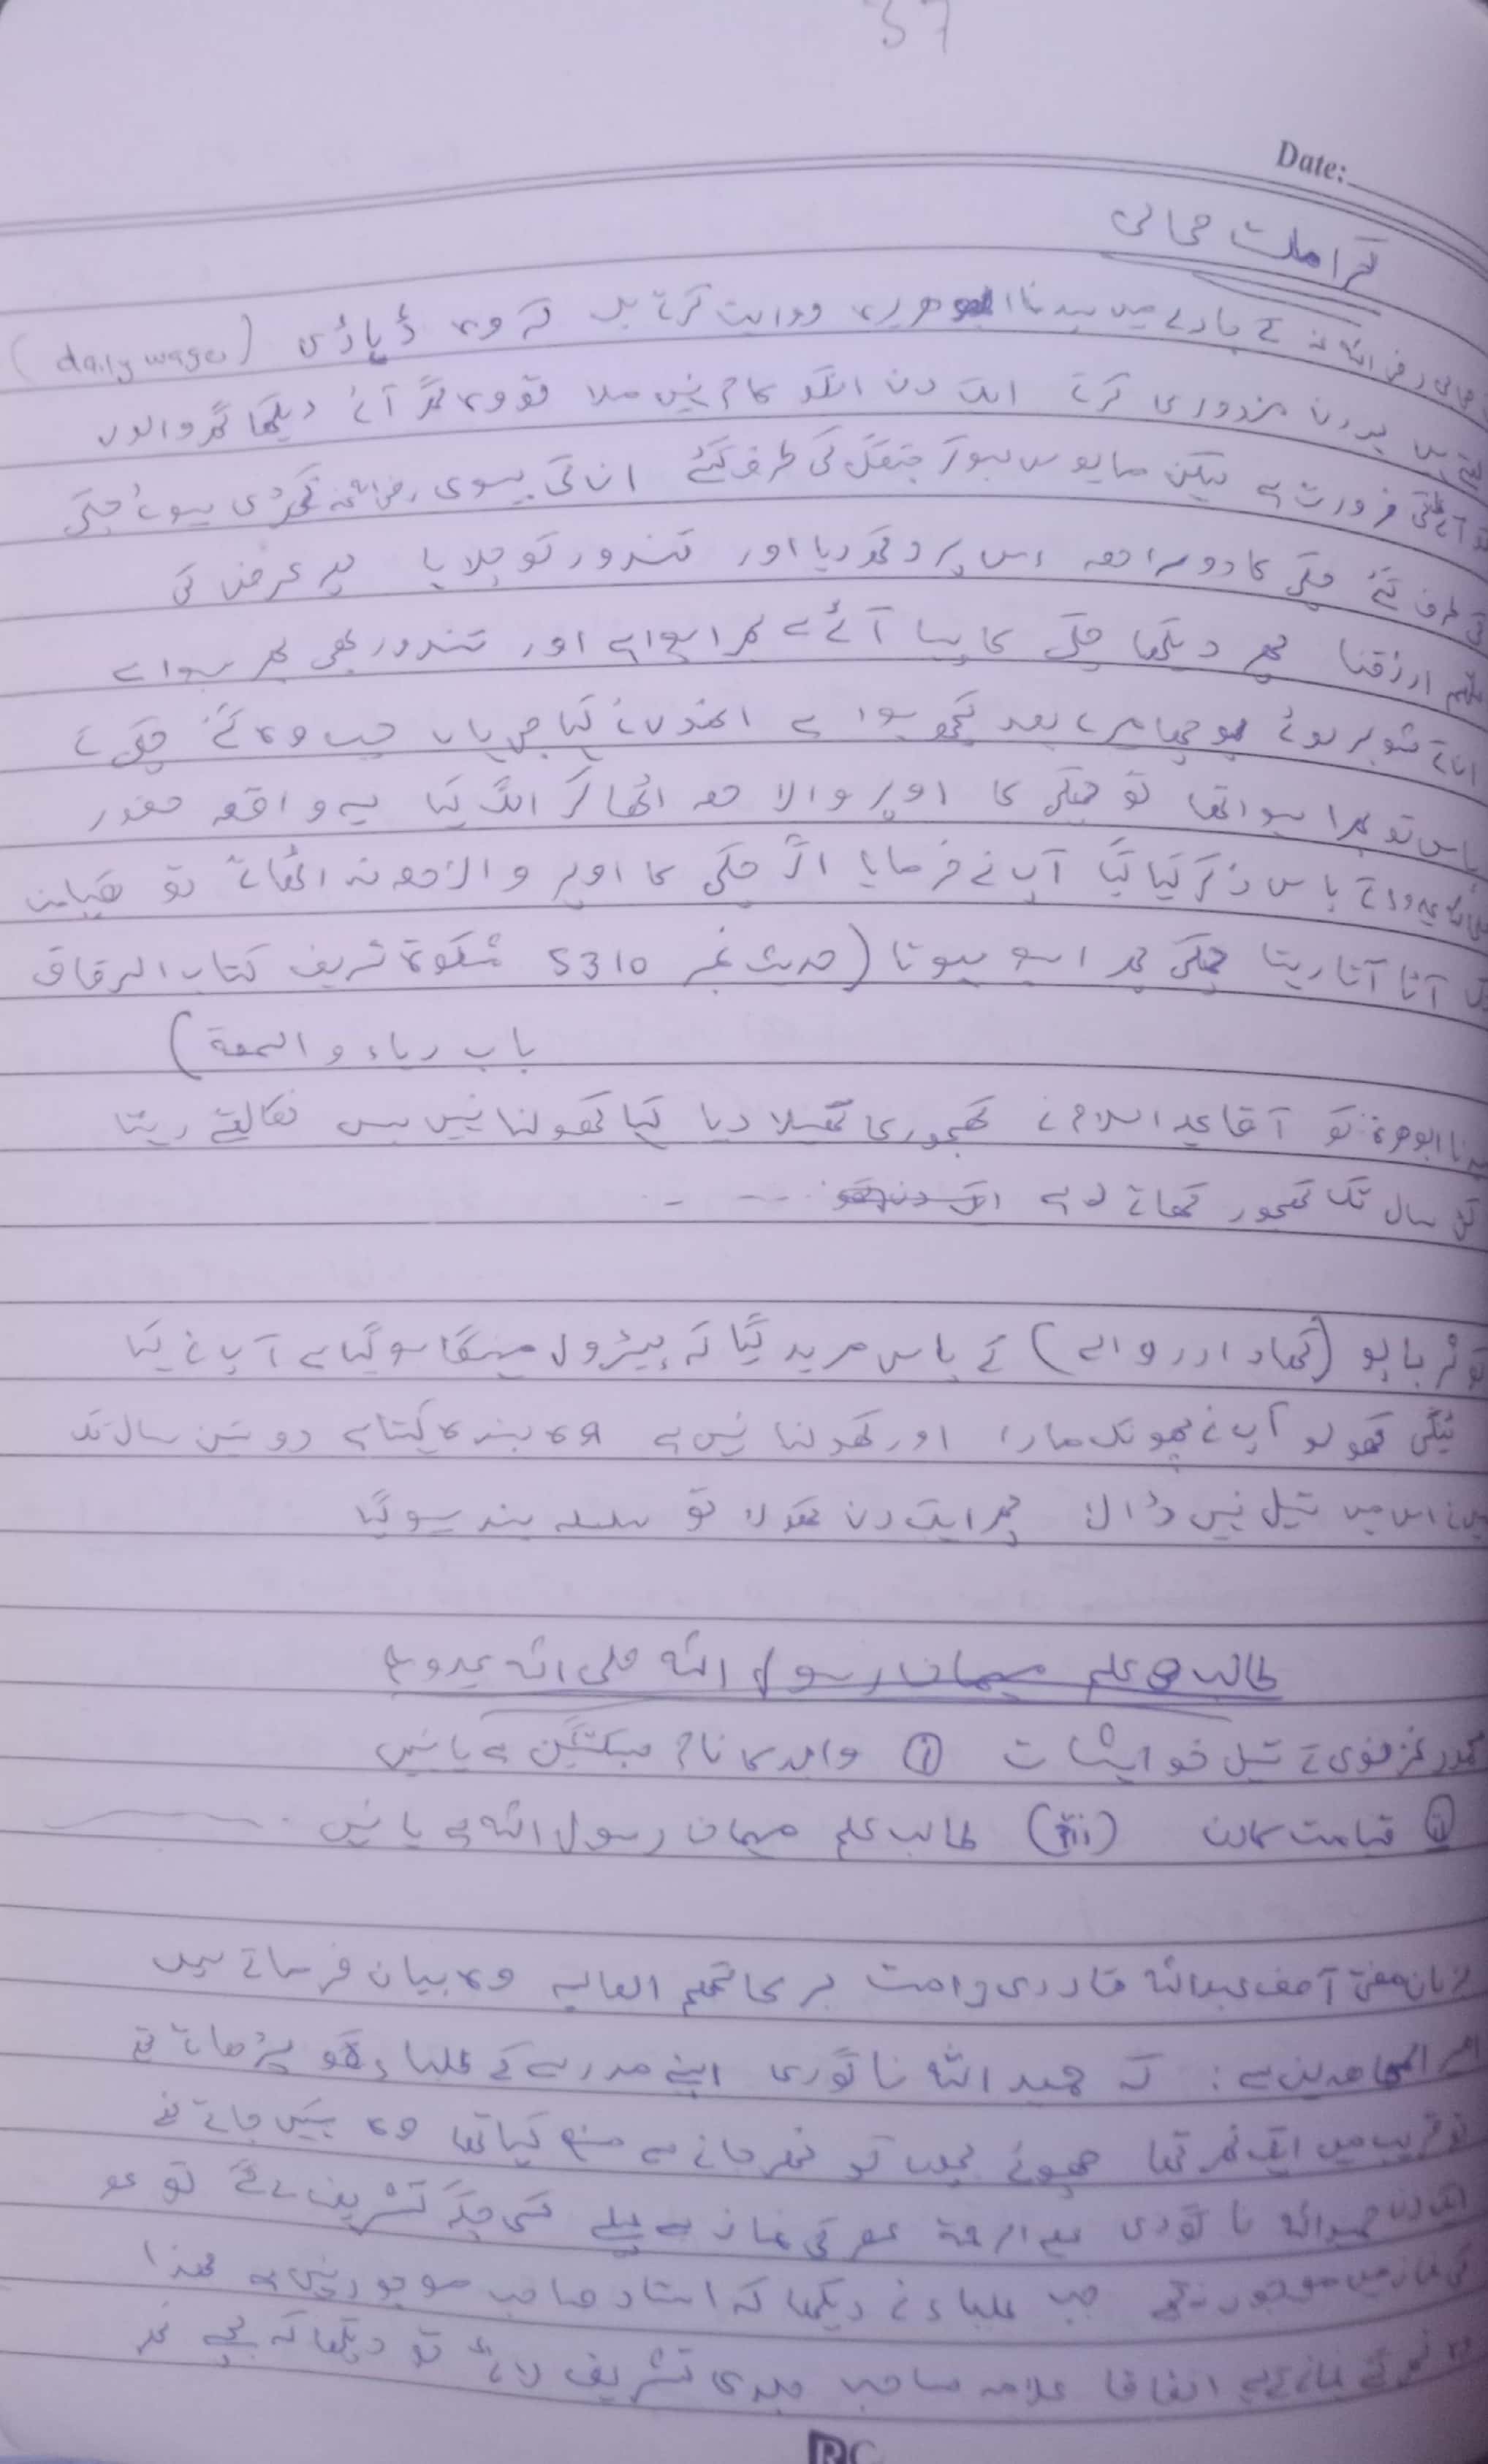 37
Date:
کرامت صحابی
صحابی رضی اللہ عنہ کے بارے میں سیدنا ابوھریرہ روایت کرتے ہیں کہ وہ ڈیاڑی (daily wages)
ہر دن مزدوری کرتے ایک دن انکو کام نہیں ملا تو وہ گھر آئے دیکھا گھر والوں
کو آٹے کی ضرورت ہے لیکن مایوس ہوکر جنگل کی طرف گئے ان کی بیوی رضی اللہ عنہ کھڑی ہوئے چکی
کی طرف گئے چکی کا دوسرا حصہ اس پر رکھ دیا اور تندور کو جلایا پھر عرض کی
اللھم ارزقنا پھر دیکھا چکی کا پیسا آٹے سے بھرا ہوا ہے اور تندور بھی بھر ہوا ہے
انکے شوہر لوٹے پوچھا میرے بعد کچھ ہوا ہے انھوں نے کہا جی ہاں جب وہ گئے چکی کے
پاس تو بھرا ہوا تھا تو چکی کا اوپر والا حصہ اٹھا کر الگ کیا یہ واقعہ حضور
کے پاس ذکر کیا گیا آپ نے فرمایا اگر چکی کا اوپر والا حصہ نہ اٹھاتے تو قیامت
تک آٹا آتا رہتا چکی بھر اسے ہوتا (حدیث نمبر 5310 مشکوۃ شریف کتاب الرقاق
باب ریاء و السمعة)
سیدنا ابوھرۃ کو آقا علیہ السلام نے کھجور کا تھیلا دیا کہا کھولنا نہیں بس نکالتے رہنا
کئی سال تک کھجور کھاتے رہے - - - -
بابو (کھادادر والے) کے پاس مرید گیا کہ پیٹرول مہنگا ہو گیا ہے آپ نے کہا
ٹنکی کھولو آپ نے پھونک مارا اور کھولنا نہیں ہے وہ بندہ کہتا ہے دو تین سال تک
میں نے اس میں تیل نہیں ڈالا پھر ایک دن کھولا تو سلسلہ بند ہو گیا
طالب علم مہمان رسول اللہ صلی اللہ علیہ وسلم
محمود غزنوی کے تین خواہشات ① والد کا نام سبکتگین ہے یا نہیں
② قیامت کا دن (iii) طالب علم مہمان رسول اللہ ہے یا نہیں
مفتی آصف عبداللہ قادری دامت برکاتھم العالیہ وہ بیان فرماتے ہیں
کہ حمید اللہ ناگوری اپنے مدرسے کے طلباء کو پڑھاتے تھے
تو قریب میں ایک نہر تھا چھوٹے بچوں کو نہر جانے سے منع کیا تھا وہ نہیں جاتے تھے
ایک دن حمید اللہ ناگوری علیہ الرحمۃ عصر کی نماز سے پہلے کسی جگہ تشریف لے گئے تو عصر
کی نماز میں موجود نہ تھے جب طلباء نے دیکھا کہ استاد صاحب موجود نہیں ہے لھذا
اتفاقا علامہ صاحب جلدی تشریف لائے تو دیکھا کہ بچے نہر
RC